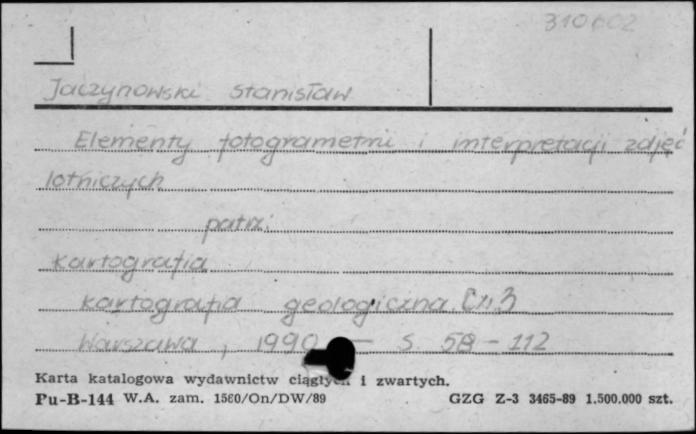 310602
Jaczynowski Stanisław
Elementy fotogrametrii i interpretacji zdjęć
lotniczych
patrz:
Kartografia
Kartografia geologiczna. Cz. 3
Warszawa, 1990 – s. 58 – 112
Karta katalogowa wydawnictw ciągłych i zwartych.
Pu-B-144 W.A. zam. 1560/On/DW/89 GZG Z-3 3465-89 1.500.000 szt.